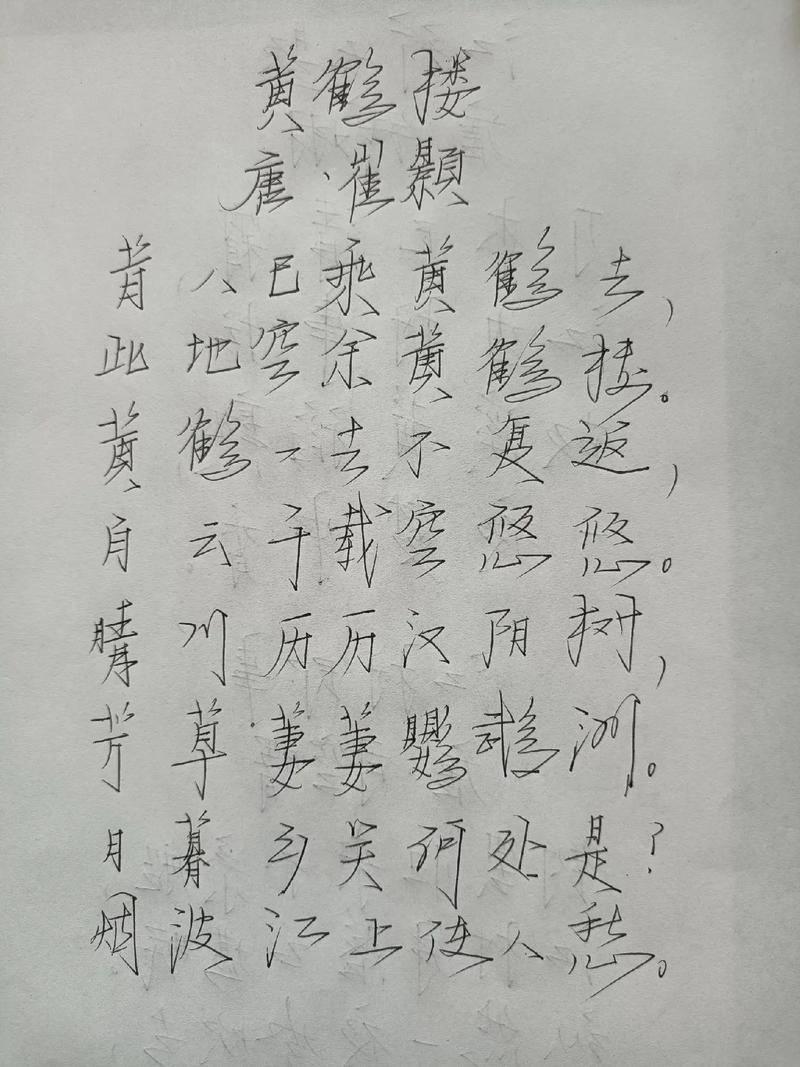 黄鹤楼
唐·崔颢
昔人已乘黄鹤去，
此地空余黄鹤楼。
黄鹤一去不复返，
白云千载空悠悠。
晴川历历汉阴树，
芳草萋萋鹦鹉洲。
日暮乡关何处是？
烟波江上使人愁。